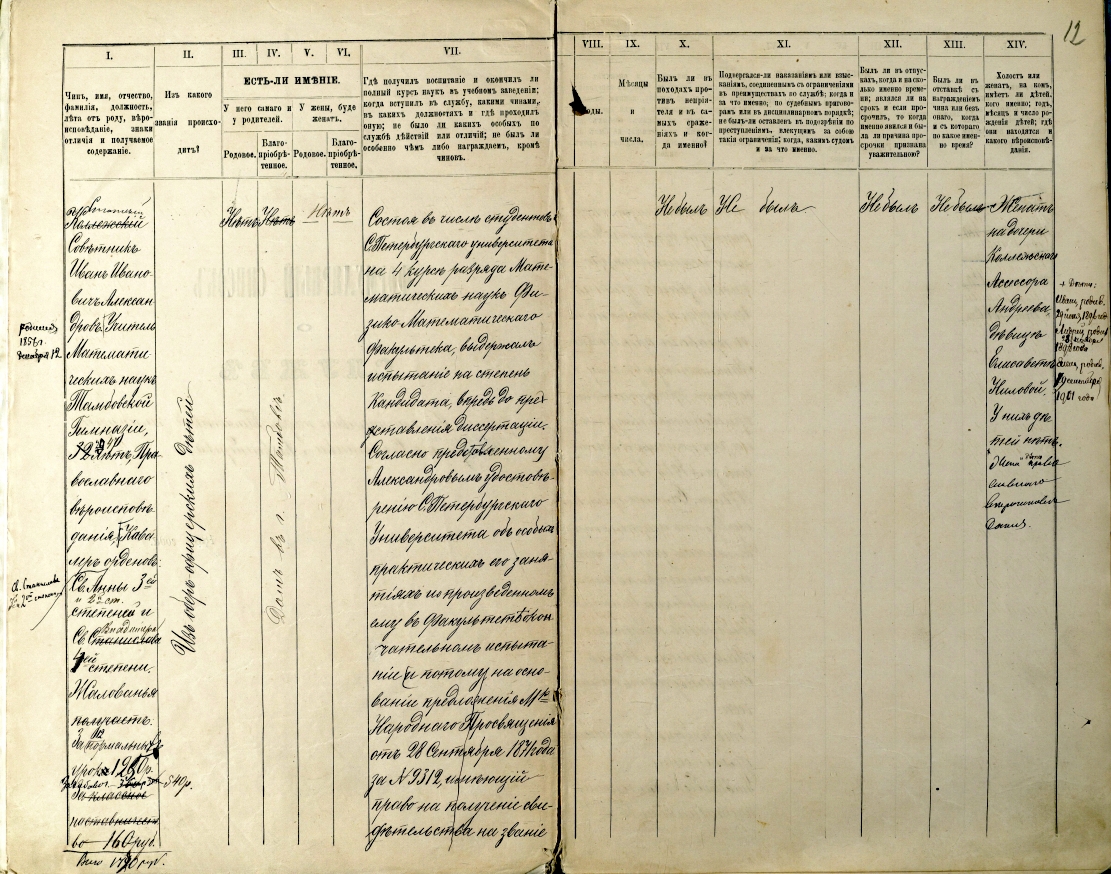 12
I.
II.
III.
IV.
V.
VI.
VII.
VIII.
IX.
X.
XI.
XII.
XIII.
XIV.
Чинъ, имя, отчество,
фамилія, должность,
лѣта отъ роду, вѣро-
исповѣданіе, знаки
отличія и получаемое
содержаніе.
Изъ какого
званія происхо-
дитъ?
ЕСТЬ-ЛИ ИМѢНІЕ.
У него самаго и
у родителей.
У жены, буде
женатъ.
Родовое.
Благо-
пріобрѣ-
тенное.
Родовое.
Благо-
пріобрѣ-
тенное.
Гдѣ получилъ воспитаніе и окончилъ ли
полный курсъ наукъ въ учебномъ заведеніи;
когда вступилъ въ службу, какими чинами,
въ какихъ должностяхъ и гдѣ проходилъ
оную; не было ли какихъ особыхъ по
службѣ дѣйствій или отличій; не былъ ли
особенно чѣмъ либо награждаемъ, кромѣ
чиновъ.
оды.
Мѣсяцы
и
числа.
Былъ ли въ
походахъ про-
тивъ непрія-
теля и въ са-
мыхъ сраже-
ніяхъ и ког-
да именно?
Подвергался-ли наказаніямъ или взыс-
каніямъ, соединеннымъ съ ограниченіями
въ преимуществахъ по службѣ; когда и
за что именно; по судебнымъ пригово-
рамъ или въ дисциплинарномъ порядкѣ;
не былъ-ли оставленъ въ подозрѣніи по
преступленіямъ, влекущимъ за собою
такія ограниченія; когда, какимъ судомъ
и за что именно.
Былъ ли въ отпус-
кахъ, когда и на ско-
лько именно времени;
являлся ли на
срокъ и если про-
срочилъ, то когда
именно явился и бы-
ла ли причина про-
срочки признана
уважительною?
Былъ ли въ
отставкѣ съ
награжденіемъ
чина или безъ
онаго, когда
и съ котораго
по какое имен-
но время?
Холостъ или
женатъ, на комъ,
имѣетъ ли дѣтей,
кого именно; годъ,
мѣсяцъ и число
рожденія дѣтей; гдѣ
они находятся и
какого вѣроисповѣ-
данія.
Статскій
Коллежскій
Совѣтникъ
Иванъ Ивано-
вичъ Алексан
дровъ, Учитель
Математи
ческихъ наукъ
Тамбовской
Гимназіи,
лѣтъ, Пра-
вославнаго
вѣроисповѣ-
данія, Кава-
леръ орденовъ:
Св. Анны 3ей
и 2й ст.
степеней и
Св. Станислава
степени.
Жалованья
получаетъ:
За 12 нормальныхъ
уроковъ 12
540р.
За классное
наставничест
во — 160 руб.
Всего
родился
1856г.
Декабря 12
Св. Станислава
Изъ оберъ офицерскихъ дѣтей
Нѣтъ
Нѣтъ
Нѣтъ
Домъ въ г. Тамбовѣ
Состоя въ числѣ студентовъ
С.Петербургскаго университета
на 4 курсѣ разряда Мате-
матическихъ наукъ Фи-
зико-Математическаго
факультета, выдержалъ
испытаніе на степень
Кандидата, впредь до пред-
ставленія диссертаціи.
Согласно представленному
Александровымъ удостовѣ-
ренію С.Петербургскаго
Университета объ особыхъ
практическихъ его заня-
тіяхъ и о произведенномъ
ему въ факультетѣ окон-
чательномъ испыта-
ніи и потому на осно-
ваніи предложенія М-ва
Народнаго Просвѣщенія
отъ 28 Сентября 187 года
за N 9312, имѣющій
право на полученіе сви-
дѣтельства на званіе
Не былъ
Не былъ
Не былъ
Не былъ
Женатъ
на дочери
Коллежскаго
Ассесора
Андреева,
дѣвицѣ
Елисаветѣ
Ниловой.
У нихъ дѣ-
тей нѣтъ.
Жена и дѣти право
славнаго
вѣроисповѣ
данія.
+ Дѣти:
Иванъ, родив.
Андрей, родив.
родив.
сентября
1901 года